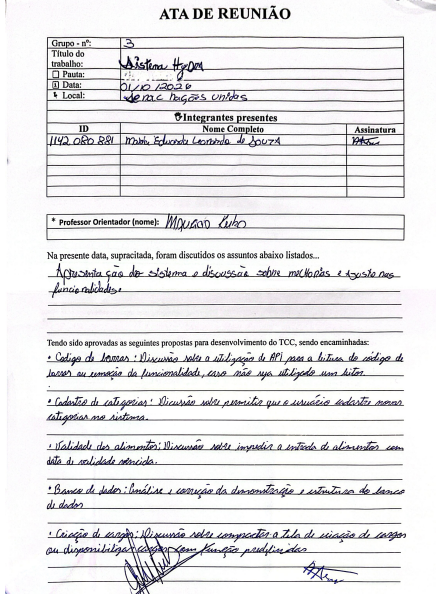 ATA DE REUNIÃO
Grupo - nº: 3
Título do
trabalho: Sistema Hydra
Pauta:
Data: 01/10/2026
Local: Senac Nações Unidas
Integrantes presentes
ID Nome Completo Assinatura
1142 080 881 Maria Eduarda Leonarda de Souza
* Professor Orientador (nome): Mauricio
Na presente data, supracitada, foram discutidos os assuntos abaixo listados...
Apresentação do sistema e discussão sobre melhorias e ajuste nas
funcionalidades.
Tendo sido aprovadas as seguintes propostas para desenvolvimento do TCC, sendo encaminhadas:
• Código de barras: Discussão sobre a utilização de API para a leitura do código de
barras ou remoção da funcionalidade, caso não seja utilizado um leitor.
• Cadastro de categorias: Dicursão sobre permitir que o usuário cadastre novas
categorias no sistema.
• Validade dos alimentos: Discussão sobre impedir a entrada de alimentos com
data de validade vencida.
• Banco de dados: Análise e correção da demonstração e estrutura do banco
de dados
• Criação de cargos: Discussão sobre compactar a tela de criação de cargos
ou disponibilizar cargos com função predefinidas